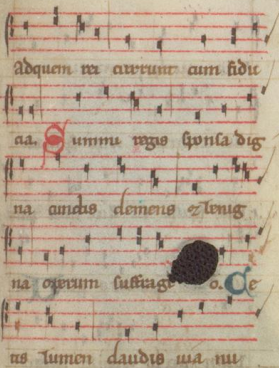 adquem rei currunt cum fidu
cia. Summi regis sponsa dig
na cunctis clemens et benig
na miserum suffrag o. Ce
tis lumen claudis via nu